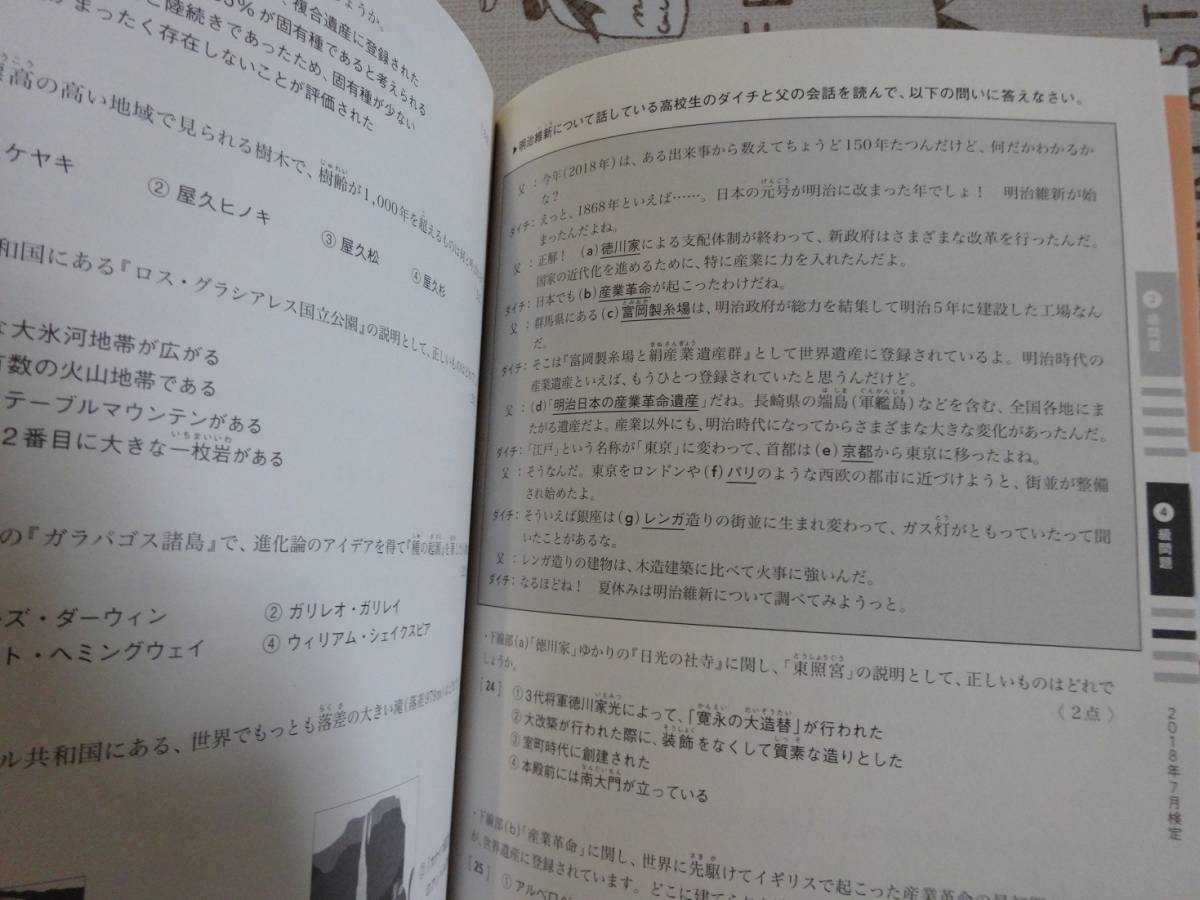 ょうか。
、複合遺産に登録された
5%が固有種であると考えられる
と陸続きであったため、固有種が少ない
まったく存在しないことが評価された
高の高い地域で見られる樹木で、樹齢が1,000年を超えるものは
ケヤキ
② 屋久ヒノキ
③ 屋久松
④ 屋久杉
和国にある『ロス・グラシアレス国立公園』の説明として、正しいものは
な大氷河地帯が広がる
有数の火山地帯である
テーブルマウンテンがある
2番目に大きな一枚岩がある
の『ガラパゴス諸島』で、進化論のアイデアを得て『種の起源』を
ズ・ダーウィン
② ガリレオ・ガリレイ
ト・ヘミングウェイ
④ ウィリアム・シェイクスピア
世界でもっとも落差の大きい滝(落差979m)
ル共和国にある、
▶明治維新について話している高校生のダイチと父の会話を読んで、以下の問いに答えなさい。
父：今年(2018年)は、ある出来事から数えてちょうど150年たつんだけど、何だかわかるか
な？
ダイチ：えっと、1868年といえば……。日本の元号が明治に改まった年でしょ！　明治維新が始
まったんだよね。
父：正解！　(a)徳川家による支配体制が終わって、新政府はさまざまな改革を行ったんだ。
国家の近代化を進めるために、特に産業に力を入れたんだよ。
ダイチ：日本でも(b)産業革命が起こったわけだね。
父：群馬県にある(c)富岡製糸場は、明治政府が総力を結集して明治5年に建設した工場なん
だ。
ダイチ：そこは『富岡製糸場と絹産業遺産群』として世界遺産に登録されているよ。明治時代の
産業遺産といえば、もうひとつ登録されていたと思うんだけど。
父：(d)『明治日本の産業革命遺産』だね。長崎県の端島(軍艦島)などを含む、全国各地にま
たがる遺産だよ。産業以外にも、明治時代になってからさまざまな大きな変化があったんだ。
ダイチ：「江戸」という名称が「東京」に変わって、首都は(e)京都から東京に移ったよね。
父：そうなんだ。東京をロンドンや(f)パリのような西欧の都市に近づけようと、街並が整備
され始めたよ。
ダイチ：そういえば銀座は(g)レンガ造りの街並に生まれ変わって、ガス灯がともっていたって聞
いたことがあるな。
父：レンガ造りの建物は、木造建築に比べて火事に強いんだ。
ダイチ：なるほどね！　夏休みは明治維新について調べてみようっと。
・下線部(a)「徳川家」ゆかりの『日光の社寺』に関し、「東照宮」の説明として、正しいものはどれで
しょうか。
〈2点〉
[24] ①3代将軍徳川家光によって、「寛永の大造替」が行われた
②大改築が行われた際に、装飾をなくして質素な造りとした
③室町時代に創建された
④本殿前には南大門が立っている
・下線部(b)「産業革命」に関し、世界に先駆けてイギリスで起こった産業革命の
が、世界遺産に登録されています。どこに建て
[25] ①アルベロ
③
級問題
④
級問題
2018年7月検定